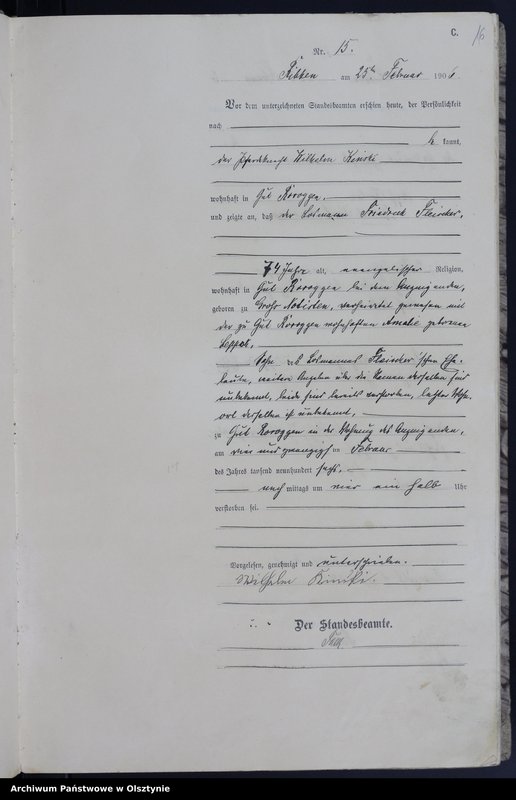 C.
16
Nr. 15.
am 25ten Februar 1906.
Vor dem unterzeichneten Standesbeamten erschien heute, der Persönlichkeit
nach
be kannt,
der Pferdeknecht Wilhelm Kinski
wohnhaft in Gut Koroggen,
und zeigte an, daß der Losmann Friedrich Fleischer,
74 Jahre alt, evangelischer Religion,
wohnhaft in Gut Koroggen bei dem Anzeigenden,
geboren zu Groß Notisten, verheiratet gewesen mit
der zu Gut Koroggen wohnhaften Amalie geborenen
Sohn des Losmannes Fleischer'schen Ehe-
leute, weitere Angaben über die Namen derselben sind
unbekannt, beide sind bereits verstorben, letzter Wohn-
ort derselben ist unbekannt,
zu Gut Koroggen in der Wohnung des Anzeigenden,
am vier und zwanzigsten Februar
des Jahres tausend neunhundert sechs,
nach mittags um vier ein halb Uhr
verstorben sei.
Vorgelesen, genehmigt und unterschrieben.
Wilhelm Kinski.
Der Standesbeamte.
Archiwum Państwowe w Olsztynie